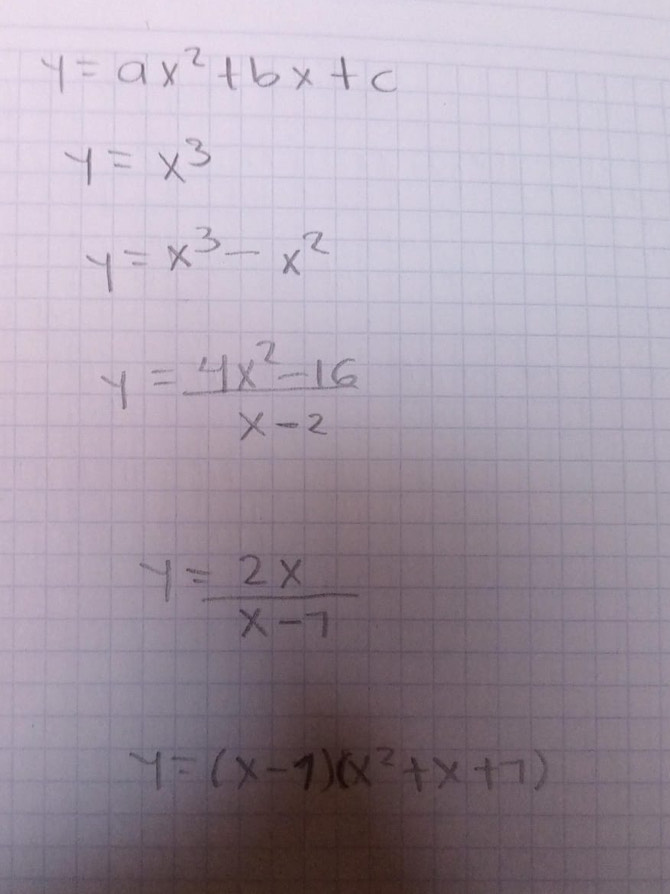 y = ax² + bx + c
y = x³
y = x³ - x²
y = (4x² - 16) / (x - 2)
y = 2x / (x - 1)
y = (x - 1)(x² + x + 1)